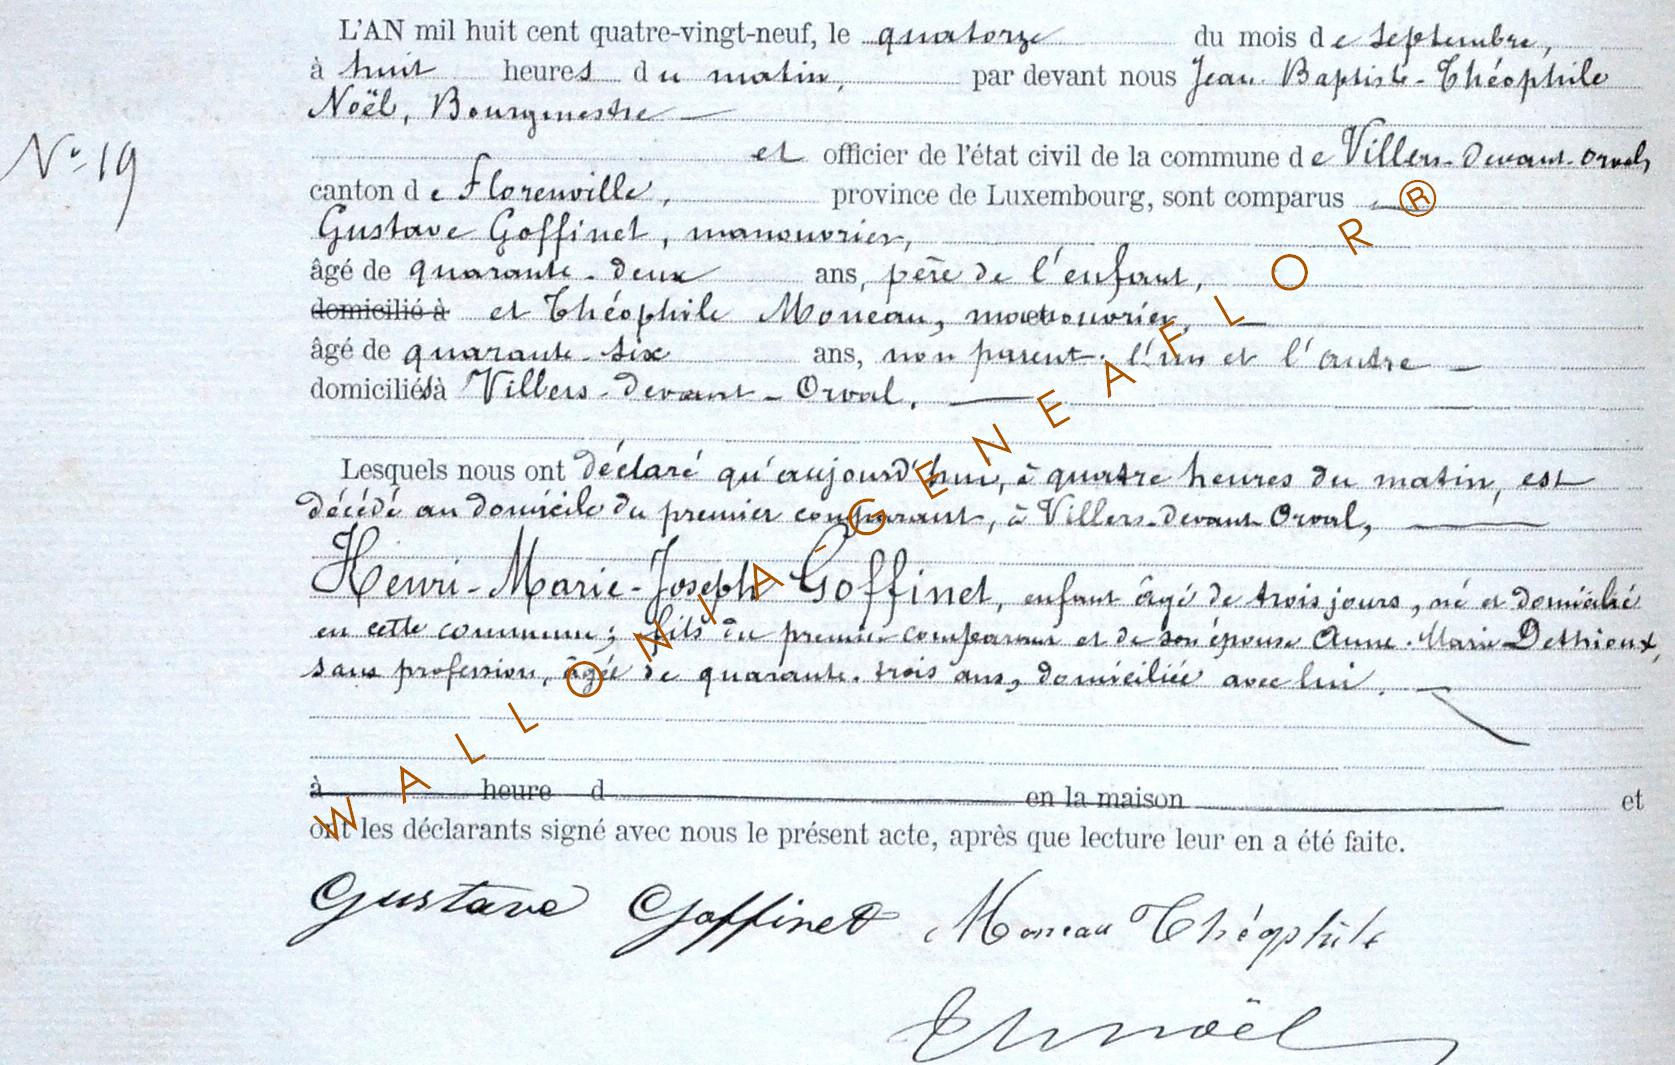 L'AN mil huit cent quatre-vingt-neuf, le quatorze du mois de septembre,
à huit heures du matin, par devant nous Jean Baptiste-Théophile
Noël, Bourgmestre
N° 19
et officier de l'état civil de la commune de Villers-devant-Orval,
canton de Florenville, province de Luxembourg, sont comparus
Gustave Goffinet, manouvrier,
âgé de quarante-deux ans, père de l'enfant,
domicilié à et Théophile Moneau, manouvrier,
âgé de quarante-six ans, non parent, l'un et l'autre
domiciliés à Villers-devant-Orval.
Lesquels nous ont déclaré qu'aujourd'hui, à quatre heures du matin, est
décédé au domicile du premier comparant, à Villers-devant-Orval,
Henri-Marie-Joseph Goffinet, enfant âgé de trois jours, né et domicilié
en cette commune; fils du premier comparant et de son épouse Anne-Marie Dethioux,
sans profession, âgée de quarante-trois ans, domiciliée avec lui.
à heure d en la maison et
ont les déclarants signé avec nous le présent acte, après que lecture leur en a été faite.
Gustave Goffinet Moneau Théophile
Th noël
WALLONIA-GENEAFLOR®